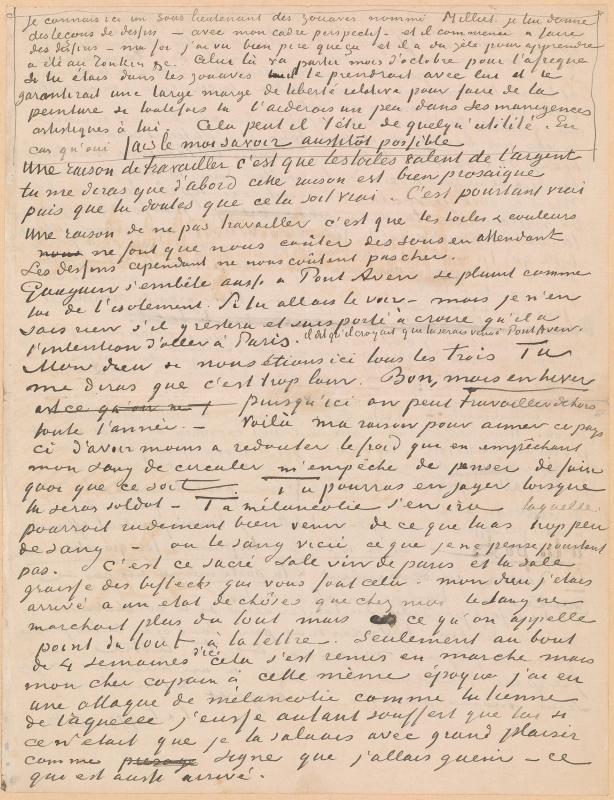 Je connais ici un sous lieutenant des zouaves nommé Milliet. je lui donne
des leçons de dessin – avec mon cadre perspectif – et il commence à faire
des dessins – ma foi j'ai vu bien pire que ça et il a du zèle pour apprendre
a été au Tonkin &c. Celui là va partir mois d'octobre pour l'afrique
Si tu étais dans les zouaves il te prendrait avec lui et te
garantirait une large marge de liberté relative pour faire de la
peinture si toutefois tu l'aiderais un peu dans ses manigences
artistiques à lui. Cela peut il t'être de quelqu'utilité. En
cas qu'oui fais le moi savoir aussitôt possible
Une raison de travailler c'est que les toiles valent de l'argent
tu me diras que d'abord cette raison est bien prosaique
puis que tu doutes que cela soit vrai. C'est pourtant vrai
Une raison de ne pas travailler c'est que les toiles & couleurs
ne font que nous coûter des sous en attendant
Les dessins cependant ne nous coûtent pas cher.
Gauguin s'embête aussi à Pont Aven se plaint comme
toi de l'isolement. Si tu allais le voir – mais je n'en
sais rien s'il y restera et suis porté à croire qu'il a
l'intention d'aller à Paris. il dit qu'il croyait que tu serais venu à Pont Aven.
Mon dieu si nous étions ici tous les trois Tu
me diras que c'est trop loin. Bon, mais en hiver
est ce qu'on ne puisqu'ici on peut travailler dehors
toute l'année. – Voilà ma raison pour aimer ce pays
ci d'avoir moins a redouter le froid que en empêchant
mon sang de circuler m'empêche de penser de faire
quoi que ce soit. Tu pourras en juger lorsque
tu seras soldat – Ta mélancolie s'en ira laquelle
pourrait rudement bien venir de ce que tu as trop peu
de sang – ou le sang vicié ce que je ne pense pourtant
pas. C'est ce sacré sale vin de paris et la sale
graisse des biftecks qui vous font cela. mon dieu j'étais
arrivé à un etat de chôses que chez moi le sang ne
marchait plus du tout mais ce qu'on appelle
point du tout à la lettre. Seulement au bout
de 4 semaines d'ici cela s'est remis en marche mais
mon cher copain à cette même époque j'ai eu
une attaque de mélancolie comme la tienne
de laquelle j'eusse autant souffert que toi si
ce n'était que je la saluais avec grand plaisir
comme signe que j'allais guérir – ce
qui est aussi arrivé.